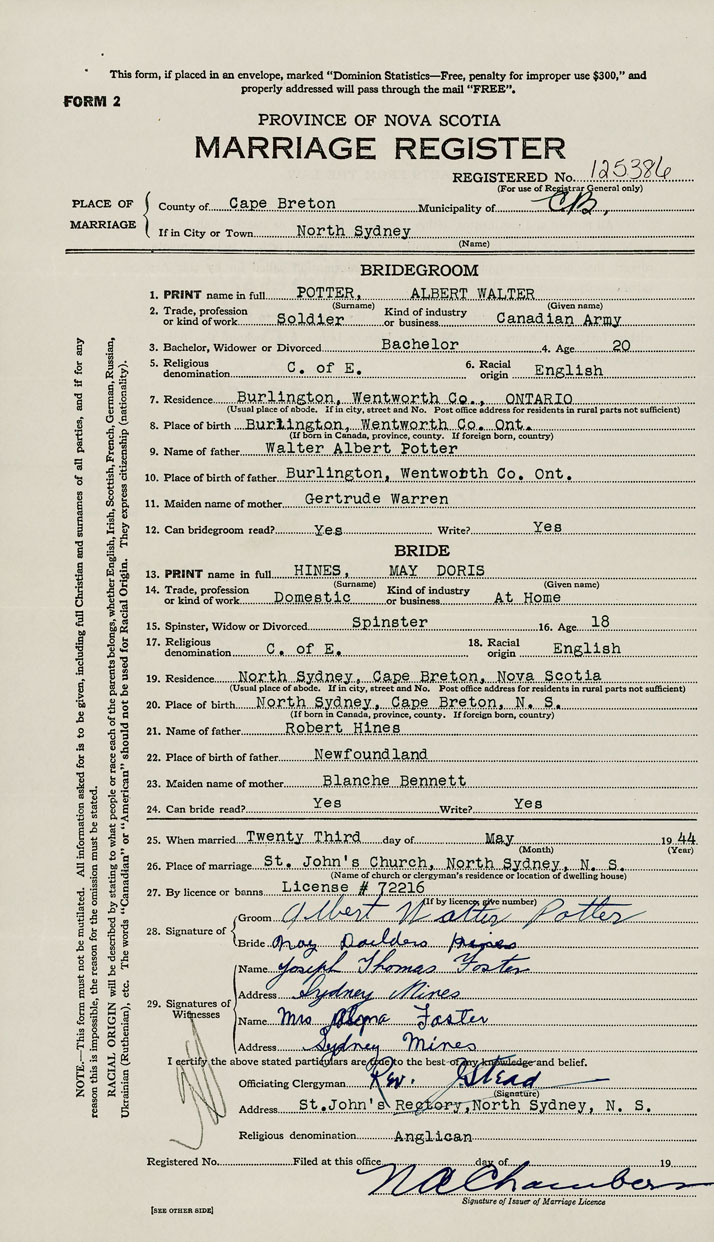 This form, if placed in an envelope, marked “Dominion Statistics—Free, penalty for improper use $300,” and
properly addressed will pass through the mail “FREE”.
FORM 2
PROVINCE OF NOVA SCOTIA
MARRIAGE REGISTER
REGISTERED No. 125386
(For use of Registrar General only)
PLACE OF MARRIAGE
County of Cape Breton Municipality of C.B,
If in City or Town North Sydney
(Name)
BRIDEGROOM
1. PRINT name in full POTTER, ALBERT WALTER
(Surname) (Given name)
2. Trade, profession or kind of work Soldier Kind of industry or business Canadian Army
3. Bachelor, Widower or Divorced Bachelor 4. Age 20
5. Religious denomination C. of E. 6. Racial origin English
7. Residence Burlington, Wentworth Co., ONTARIO
(Usual place of abode. If in city, street and No. Post office address for residents in rural parts not sufficient)
8. Place of birth Burlington, Wentworth Co. Ont.
(If born in Canada, province, county. If foreign born, country)
9. Name of father Walter Albert Potter
10. Place of birth of father Burlington, Wentworth Co. Ont.
11. Maiden name of mother Gertrude Warren
12. Can bridegroom read? Yes Write? Yes
BRIDE
13. PRINT name in full HINES, MAY DORIS
(Surname) (Given name)
14. Trade, profession or kind of work Domestic Kind of industry or business At Home
15. Spinster, Widow or Divorced Spinster 16. Age 18
17. Religious denomination C. of E. 18. Racial origin English
19. Residence North Sydney, Cape Breton, Nova Scotia
(Usual place of abode. If in city, street and No. Post office address for residents in rural parts not sufficient)
20. Place of birth North Sydney, Cape Breton, N. S.
(If born in Canada, province, county. If foreign born, country)
21. Name of father Robert Hines
22. Place of birth of father Newfoundland
23. Maiden name of mother Blanche Bennett
24. Can bride read? Yes Write? Yes
25. When married Twenty Third day of May 1944
(Month) (Year)
26. Place of marriage St. John's Church, North Sydney, N. S.
(Name of church or clergyman's residence or location of dwelling house)
27. By licence or banns License # 72216
(If by licence, give number)
28. Signature of
Groom Albert Walter Potter
Bride May Hines
29. Signatures of Witnesses
Name Joseph Thomas Foster
Address Sydney Mines
Name Mrs Foster
Address Sydney Mines
I certify the above stated particulars are true to the best of my knowledge and belief.
Officiating Clergyman Rev. Stead
(Signature)
Address St.John's Rectory,North Sydney, N. S.
Religious denomination Anglican
Registered No. Filed at this office day of 19
N A Chambers
Signature of Issuer of Marriage Licence
[SEE OTHER SIDE]
NOTE.—This form must not be mutilated. All information asked for is to be given, including full Christian and surnames of all parties, and if for any
reason this is impossible, the reason for the omission must be stated.
RACIAL ORIGIN will be described by stating to what people or race each of the parents belongs, whether English, Irish, Scottish, French, German, Russian,
Ukrainian (Ruthenian), etc. The words “Canadian” or “American” should not be used for Racial Origin. They express citizenship (nationality).